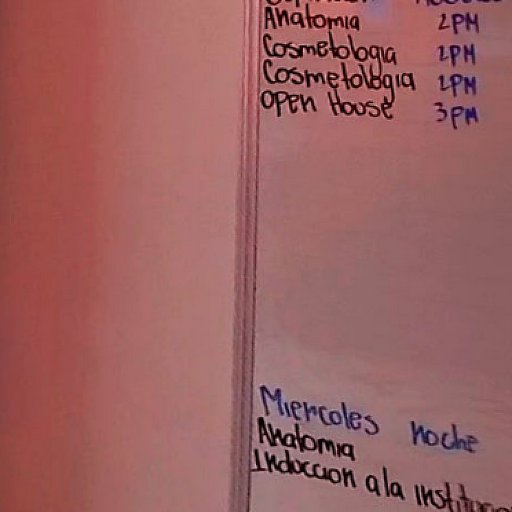 Anatomia 2PM
Cosmetologia 2PM
Cosmetologia 2PM
Open House 3PM
Miercoles noche
Anatomia
Induccion a la